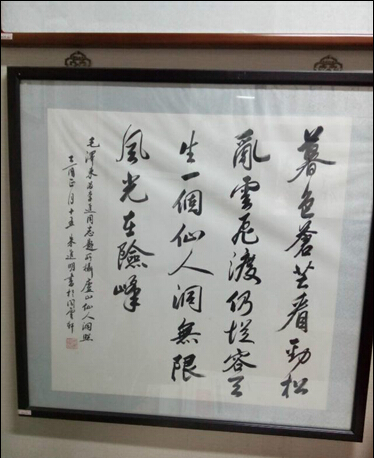 暮色蒼茫看勁松
亂雲飛渡仍從容天
生一個仙人洞無限
風光在險峰
毛澤東為李進同志題所攝廬山仙人洞照
酉正月十五 朱進明書於